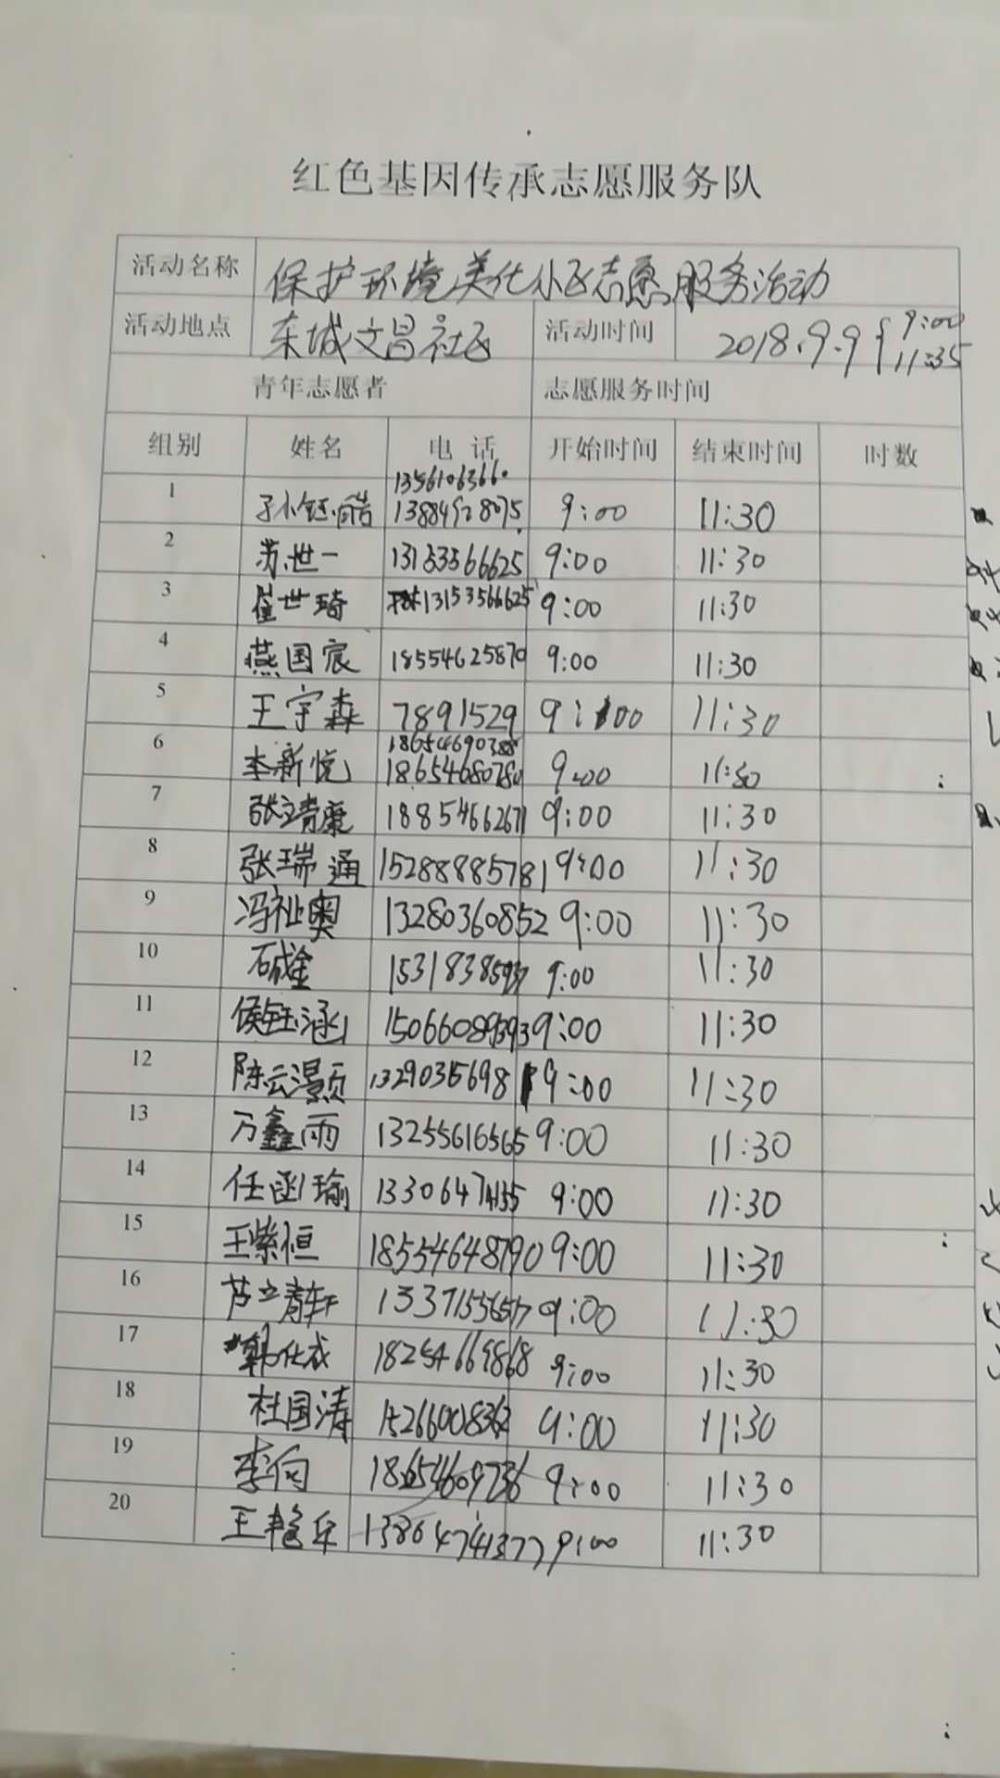 红色基因传承志愿服务队
活动名称 保护环境美化小区志愿服务活动
活动地点 东城文昌社区 活动时间 2018.9.9 9:00 11:35
青年志愿者 志愿服务时间
组别 姓名 电话 开始时间 结束时间 时数
1 13561063660 孙钰皓 13884928075 9:00 11:30
2 苏世一 13153566625 9:00 11:30
3 崔世琦 13153566625 9:00 11:30
4 燕国宸 18554625870 9:00 11:30
5 王宇森 7891529 9:00 11:30
6 李新悦 18654680780 9:00 11:30
7 张靖康 18854662671 9:00 11:30
8 张瑞通 15288885781 9:00 11:30
9 冯祉奥 13280360852 9:00 11:30
10 9:00 11:30
11 侯钰涵 15066089393 9:00 11:30
12 陈云灏 9:00 11:30
13 万鑫雨 13255616565 9:00 11:30
14 任函瑜 13306474135 9:00 11:30
15 王紫恒 18554648790 9:00 11:30
16 9:00 11:30
17 韩仕成 18254669868 9:00 11:30
18 杜国涛 15266008362 9:00 11:30
19 李向 18654609736 9:00 11:30
20 王艳乐 13864741377 9:00 11:30